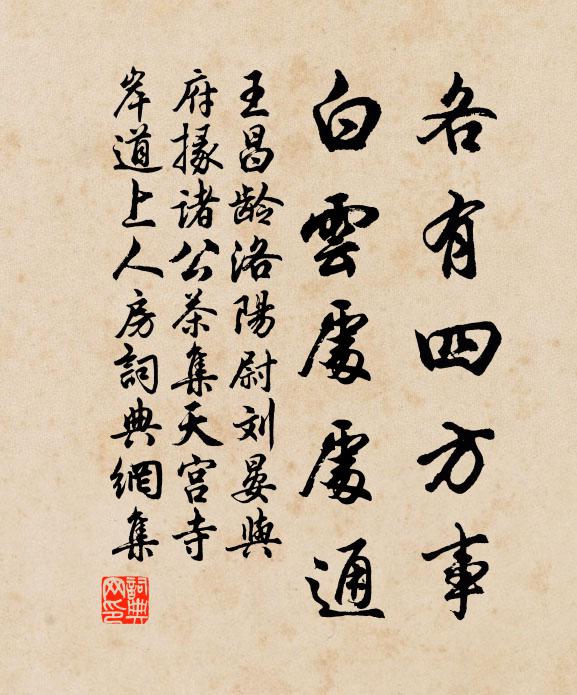 各有四方事
白雲處處通
王昌龄洛陽尉刘晏與
府掾諸公茶集天宫寺
岸道上人房詞典網集
詞典网印